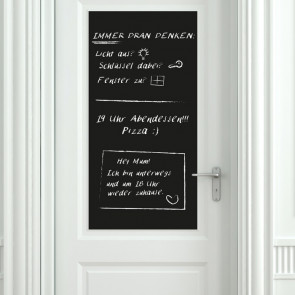 IMMER DRAN DENKEN:
Licht aus?
Schlüssel dabei?
Fenster zu?
19 Uhr Abendessen!!!
Pizza :)
Hey Mum!
Ich bin unterwegs
und um 18 Uhr
wieder zuhause.